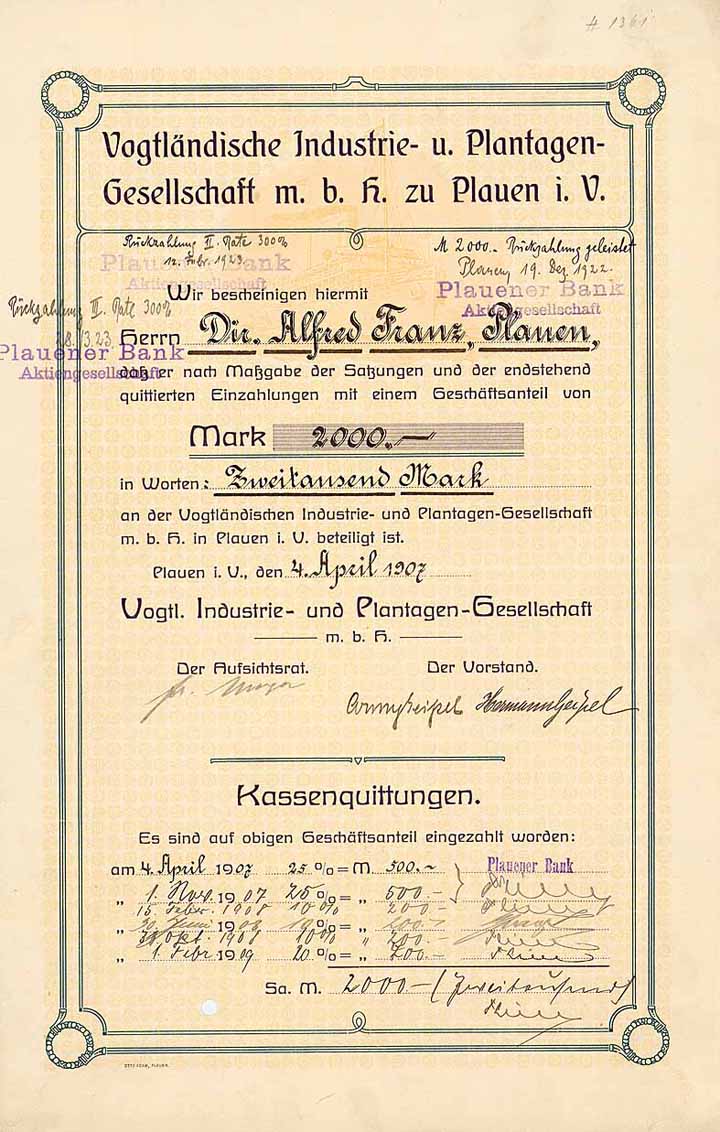 # 1361
Vogtländische Industrie- u. Plantagen-
Gesellschaft m. b. H. zu Plauen i. V.
Rückzahlung II. Rate 300%
12. Febr. 1923
Plauener Bank
Aktiengesellschaft
M 2000.- Rückzahlung geleistet
Plauen, 19. Dez. 1922.
Plauener Bank
Aktiengesellschaft
Rückzahlung III. Rate 300%
28./3.23.
Plauener Bank
Aktiengesellschaft
Wir bescheinigen hiermit
Herrn Dir. Alfred Franz, Plauen,
daß er nach Maßgabe der Satzungen und der endstehend
quittierten Einzahlungen mit einem Geschäftsanteil von
Mark 2000.—
in Worten: Zweitausend Mark
an der Vogtländischen Industrie- und Plantagen-Gesellschaft
m. b. H. in Plauen i. V. beteiligt ist.
Plauen i. V., den 4. April 1907
Vogtl. Industrie- und Plantagen-Gesellschaft
m. b. H.
Der Aufsichtsrat. Der Vorstand.
Hermann Geipel
Kassenquittungen.
Es sind auf obigen Geschäftsanteil eingezahlt worden:
am 4. April 1907 25 % = M. 500.- Plauener Bank
„ 1. Nov. 1907 25 % = „ 500.-
15. Febr. 1908 10 % 200.-
„ 30. Juni 1908 10 % = „ 200.-
31. Okt. 1908 10 % „ 200.-
„ 1. Febr 1909 20 % = „ 400.-
Sa. M. 2000.- (Zweitausend)
OTTO KORB, PLAUEN.